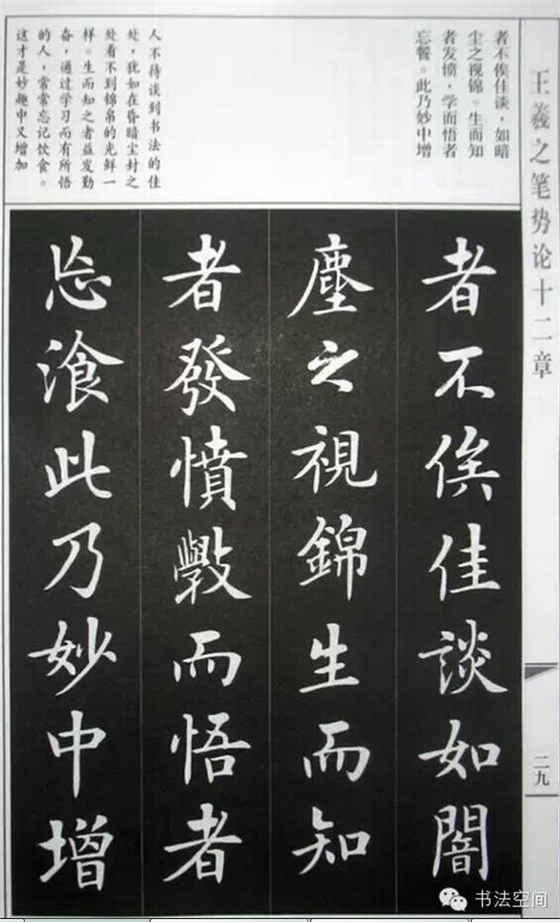 王羲之笔势论十二章
二九
者不俟佳谈，如暗
尘之视锦。生而知
者发愤，学而悟者
忘餐。此乃妙中增
人不待谈到书法的佳
处，犹如在昏暗尘封之
处看不到锦帛的光鲜一
样。生而知之者益发勤
奋，通过学习而有所悟
的人，常常忘记饮食。
这才是妙趣中又增加
者不俟佳談如闇
塵之視錦生而知
者發憤斆而悟者
忘飡此乃妙中增
书法空间